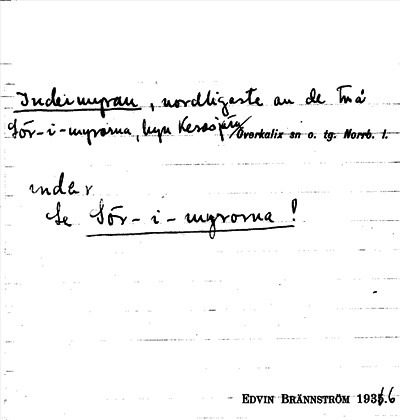 Indermyran, nordligaste av de två
Sör-i-myrorna, byn Kerosjärv/Överkalix sn o. tg. Norrb. l.
under
Se Sör-i-myrorna!
EDVIN BRÄNNSTRÖM 1936.6